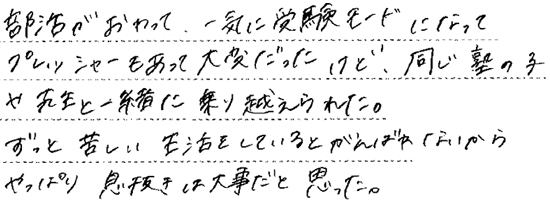 部活がおわって、一気に受験モードになって
プレッシャーもあって大変だったけど、同じ塾の子
や先生と一緒に乗り越えられた。
ずっと苦しい生活をしているとがんばれないから
やっぱり息抜きは大事だと思った。